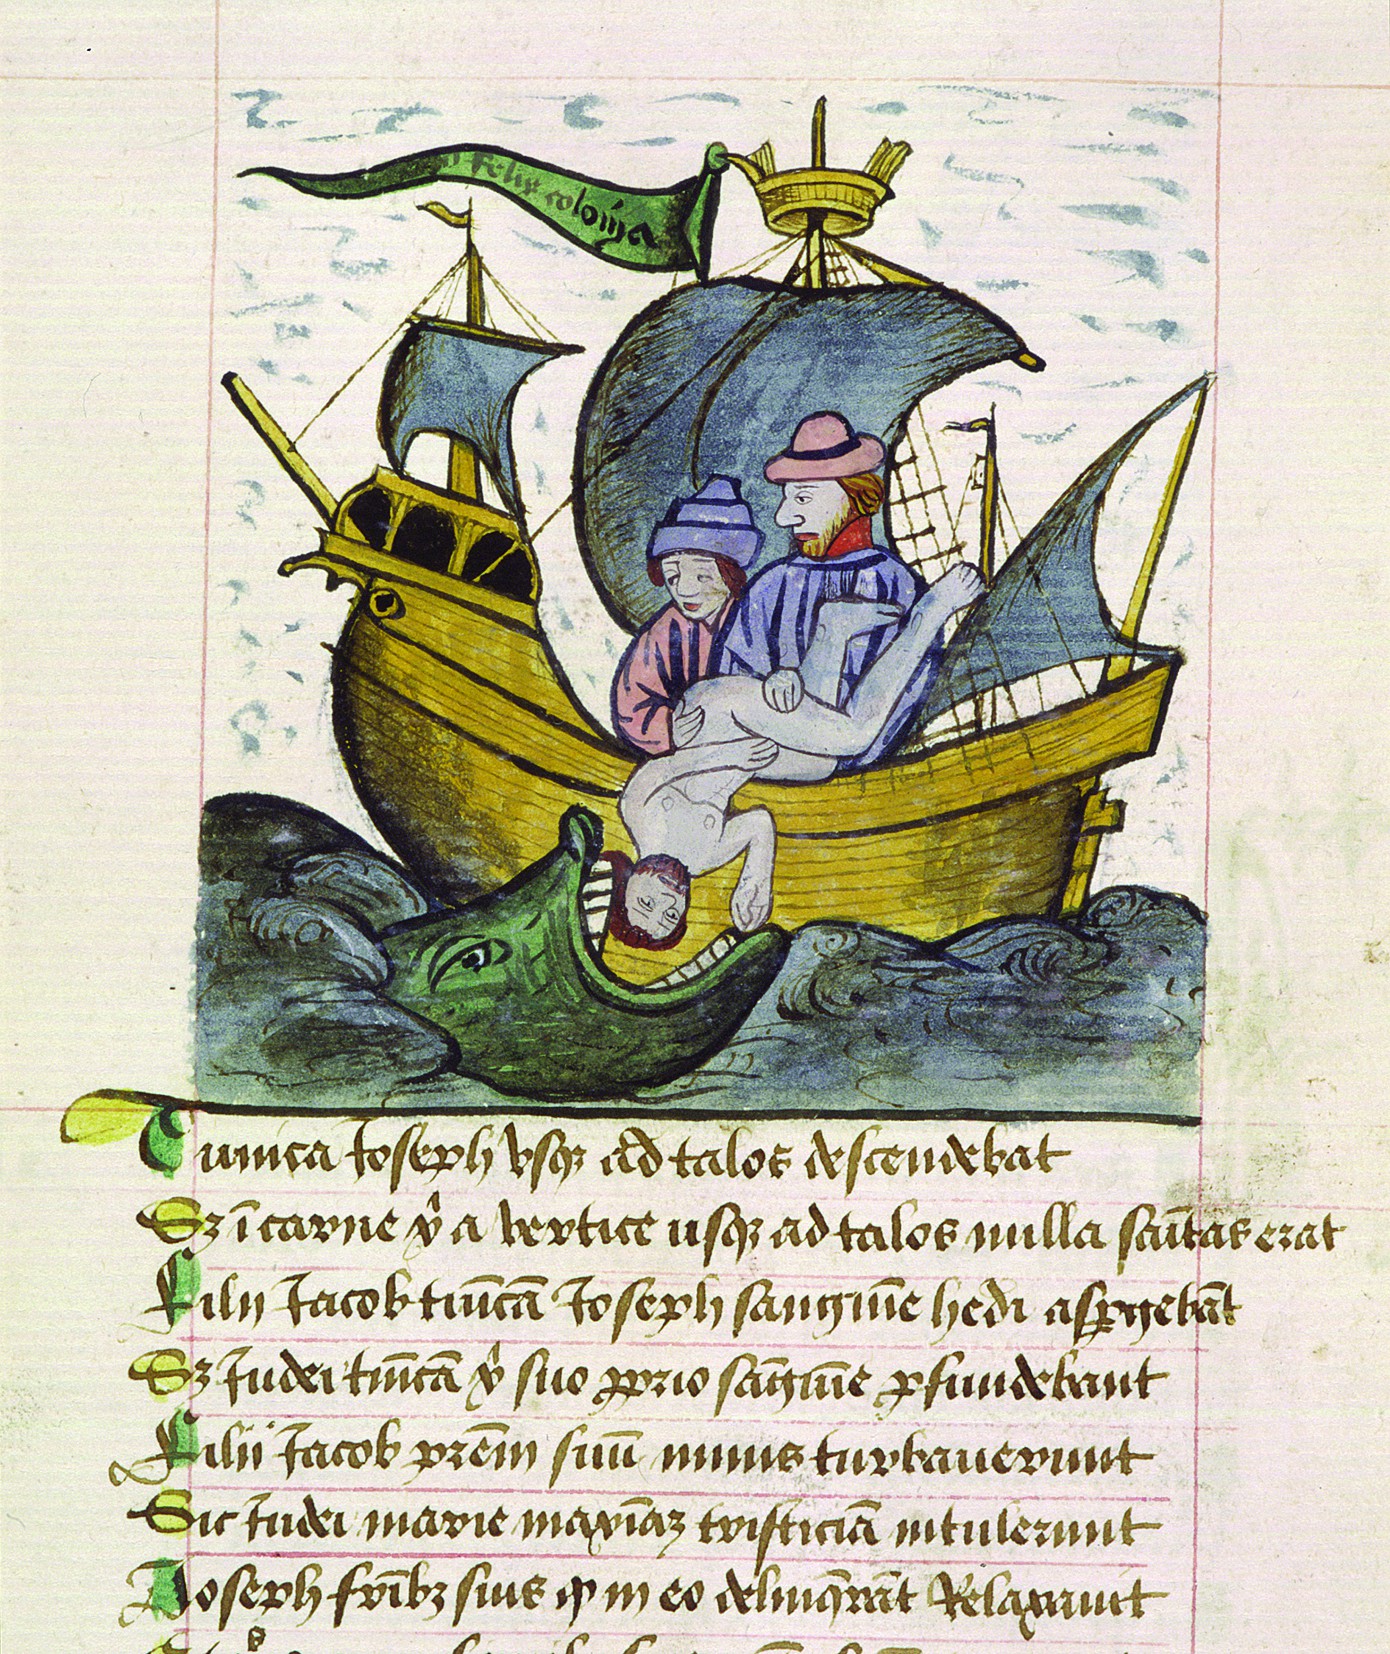 felix colonia
Tunica Joseph vsqz ad talos descendebat
Sz ī carne xp̄i a vertice usqz ad talos nulla sanītas erat
Filij Jacob tūicā Joseph sanguīe hedi aspergebāt
Sz Iudei tūicā xp̄i suo pprio sāguīe pfundebant
Filii Jacob prēm suū nimis turbauerunt
Sic Iudei marie maxīaz tristiciā intulerunt
Joseph frībz suis in eo delinqrāt Relaxauit